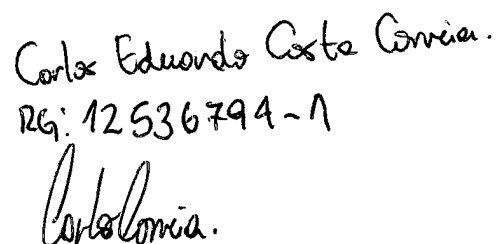 Carlos Eduardo Costa Correia.
RG: 12536794-1
Carlos Correia.